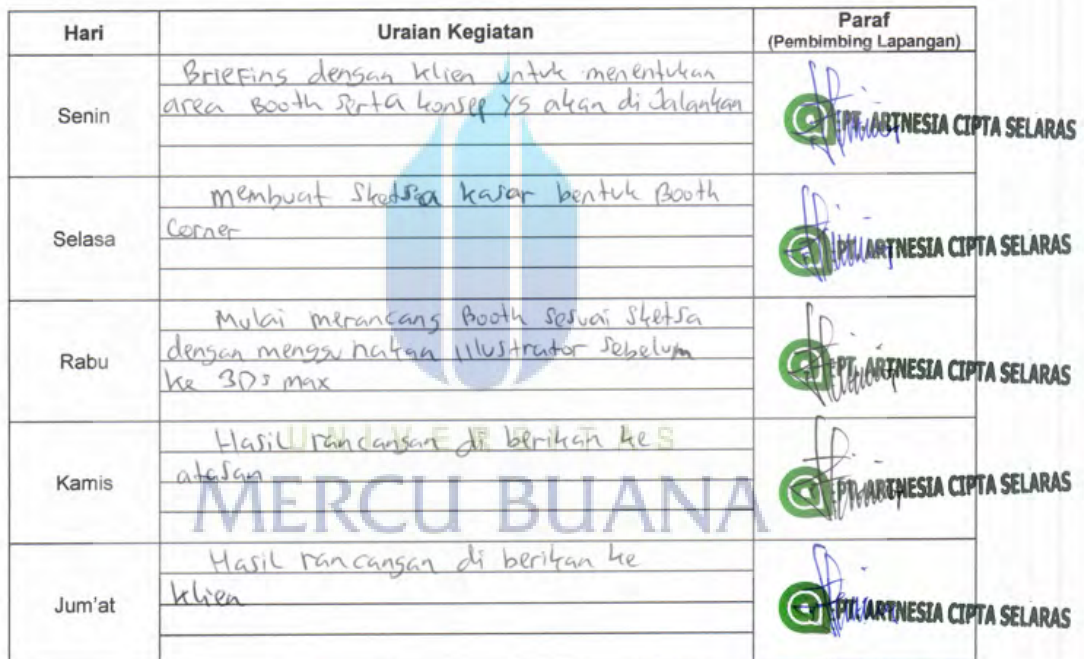 Hari Uraian Kegiatan Paraf
(Pembimbing Lapangan)
Senin
Briefing dengan klien untuk menentukan
area Booth serta konsep yg akan di Jalankan
PT. ARTNESIA CIPTA SELARAS
Selasa
membuat Sketsa kasar bentuk Booth
Corner
PT. ARTNESIA CIPTA SELARAS
Rabu
Mulai merancang Booth sesuai Sketsa
dengan menggunakan Illustrator sebelum
ke 3Ds max
PT. ARTNESIA CIPTA SELARAS
Kamis
Hasil rancangan di berikan ke
atasan
PT. ARTNESIA CIPTA SELARAS
UNIVERSITAS
MERCU BUANA
Jum'at
Hasil rancangan di berikan ke
klien
PT. ARTNESIA CIPTA SELARAS